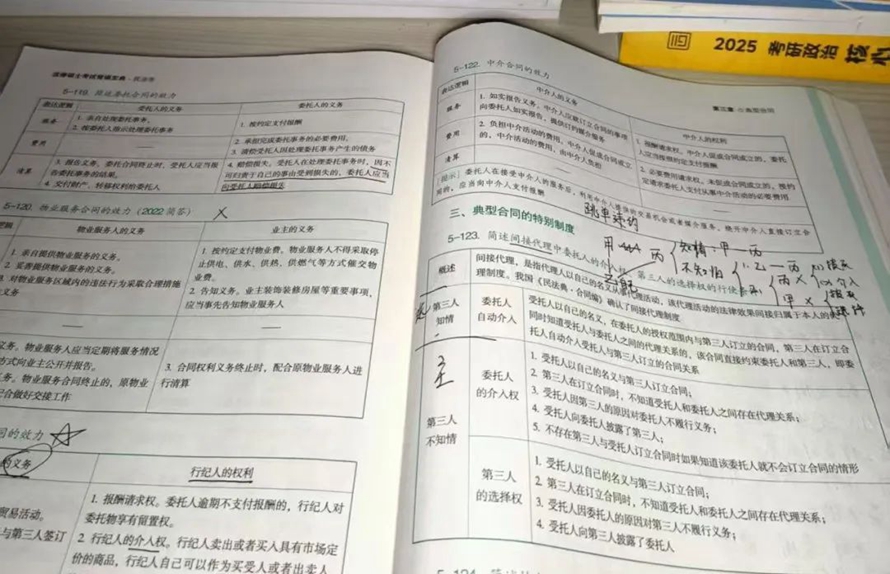 2025 考研政治 核心
法律硕士考试背诵宝典
5-119. 简述委托合同的效力
表达逻辑 受托人的义务 委托人的义务
服务 1. 亲自处理委托事务。
2. 按委托人指示处理委托事务
1. 按约定支付报酬
费用 —— 2. 承担完成委托事务的必要费用。
3. 清偿受托人因处理委托事务产生的债务
清算 3. 报告义务。委托合同终止时,受托人应当报告委托事务的结果。
4. 交付财产、转移权利给委托人
4. 赔偿损失。受托人在处理委托事务时,因不可归责于自己的事由受到损失的,委托人应当向受托人赔偿损失
5-120. 物业服务合同的效力(2022 简答) X
逻辑 物业服务人的义务 业主的义务
1. 亲自提供物业服务的义务。
2. 妥善提供物业服务的义务。
3. 对物业服务区域内的违法行为采取合理措施
义务
1. 按约定支付物业费。物业服务人不得采取停止供电、供水、供热、供燃气等方式催交物业费。
2. 告知义务。业主装饰装修房屋等重要事项,应当事先告知物业服务人
——
义务。物业服务人应当定期将服务情况
方式向业主公开并报告。
义务。物业服务合同终止的,原物业
配合做好交接工作
3. 合同权利义务终止时,配合原物业服务人进行清算
同的效力
的义务 行纪人的权利
贸易活动。
与第三人签订
1. 报酬请求权。委托人逾期不支付报酬的,行纪人对
委托物享有留置权。
2. 行纪人的介入权。行纪人卖出或者买入具有市场定
价的商品,行纪人自己可以作为买受人或者出卖人
第三章 典型合同
5-122. 中介合同的效力
表达逻辑 中介人的义务 中介人的权利
服务 1. 如实报告义务。中介人应就订立合同的事项
向委托人如实报告,提供订约媒介服务
1. 报酬请求权。中介人促成合同成立的,委托
人应当按照约定支付报酬
费用 2. 负担中介活动的费用。中介人促成合同成立
的,中介活动的费用,由中介人负担
2. 必要费用请求权。未促成合同成立的,按约
定请求委托人支付从事中介活动的必要费用
清算 —— ——
[提示] 委托人在接受中介人的服务后,利用中介人提供的交易机会或者媒介服务,绕开中介人直接订立合
同的,应当向中介人支付报酬
跳单违约
三、典型合同的特别制度
5-123. 简述间接代理中委托人的介入权、第三人的选择权的行使
甲 丙 知情:甲—丙
不知情
概述 间接代理,是指代理人以自己的名义从事代理活动,该代理活动的法律效果间接归属于本人的代
理制度。我国《民法典·合同编》确认了间接代理制度
第三人
知情
委托人
自动介入
受托人以自己的名义,在委托人的授权范围内与第三人订立的合同,第三人在订立合
同时知道受托人与委托人之间的代理关系的,该合同直接约束委托人和第三人,即委
托人自动介入受托人与第三人订立的合同关系
第三人
不知情
委托人
的介入权
1. 受托人以自己的名义与第三人订立合同;
2. 第三人在订立合同时,不知道受托人和委托人之间存在代理关系;
3. 受托人因第三人的原因对委托人不履行义务;
4. 受托人向委托人披露了第三人;
5. 不存在第三人与受托人订立合同时如果知道该委托人就不会订立合同的情形
第三人
的选择权
1. 受托人以自己的名义与第三人订立合同;
2. 第三人在订立合同时,不知道受托人和委托人之间存在代理关系;
3. 受托人因委托人的原因对第三人不履行义务;
4. 受托人向第三人披露了委托人